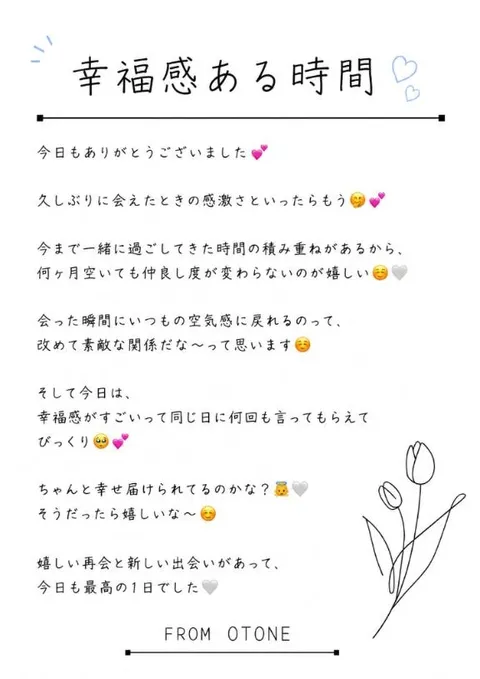 幸福感ある時間
今日もありがとうございました💕
久しぶりに会えたときの感激さといったらもう🤭💕
今まで一緒に過ごしてきた時間の積み重ねがあるから、
何ヶ月空いても仲良し度が変わらないのが嬉しい☺️🤍
会った瞬間にいつもの空気感に戻れるのって、
改めて素敵な関係だな〜って思います☺️
そして今日は、
幸福感がすごいって同じ日に何回も言ってもらえて
びっくり🥺💕
ちゃんと幸せ届けられてるのかな？👼🤍
そうだったら嬉しいな〜☺️
嬉しい再会と新しい出会いがあって、
今日も最高の1日でした🤍
FROM OTONE